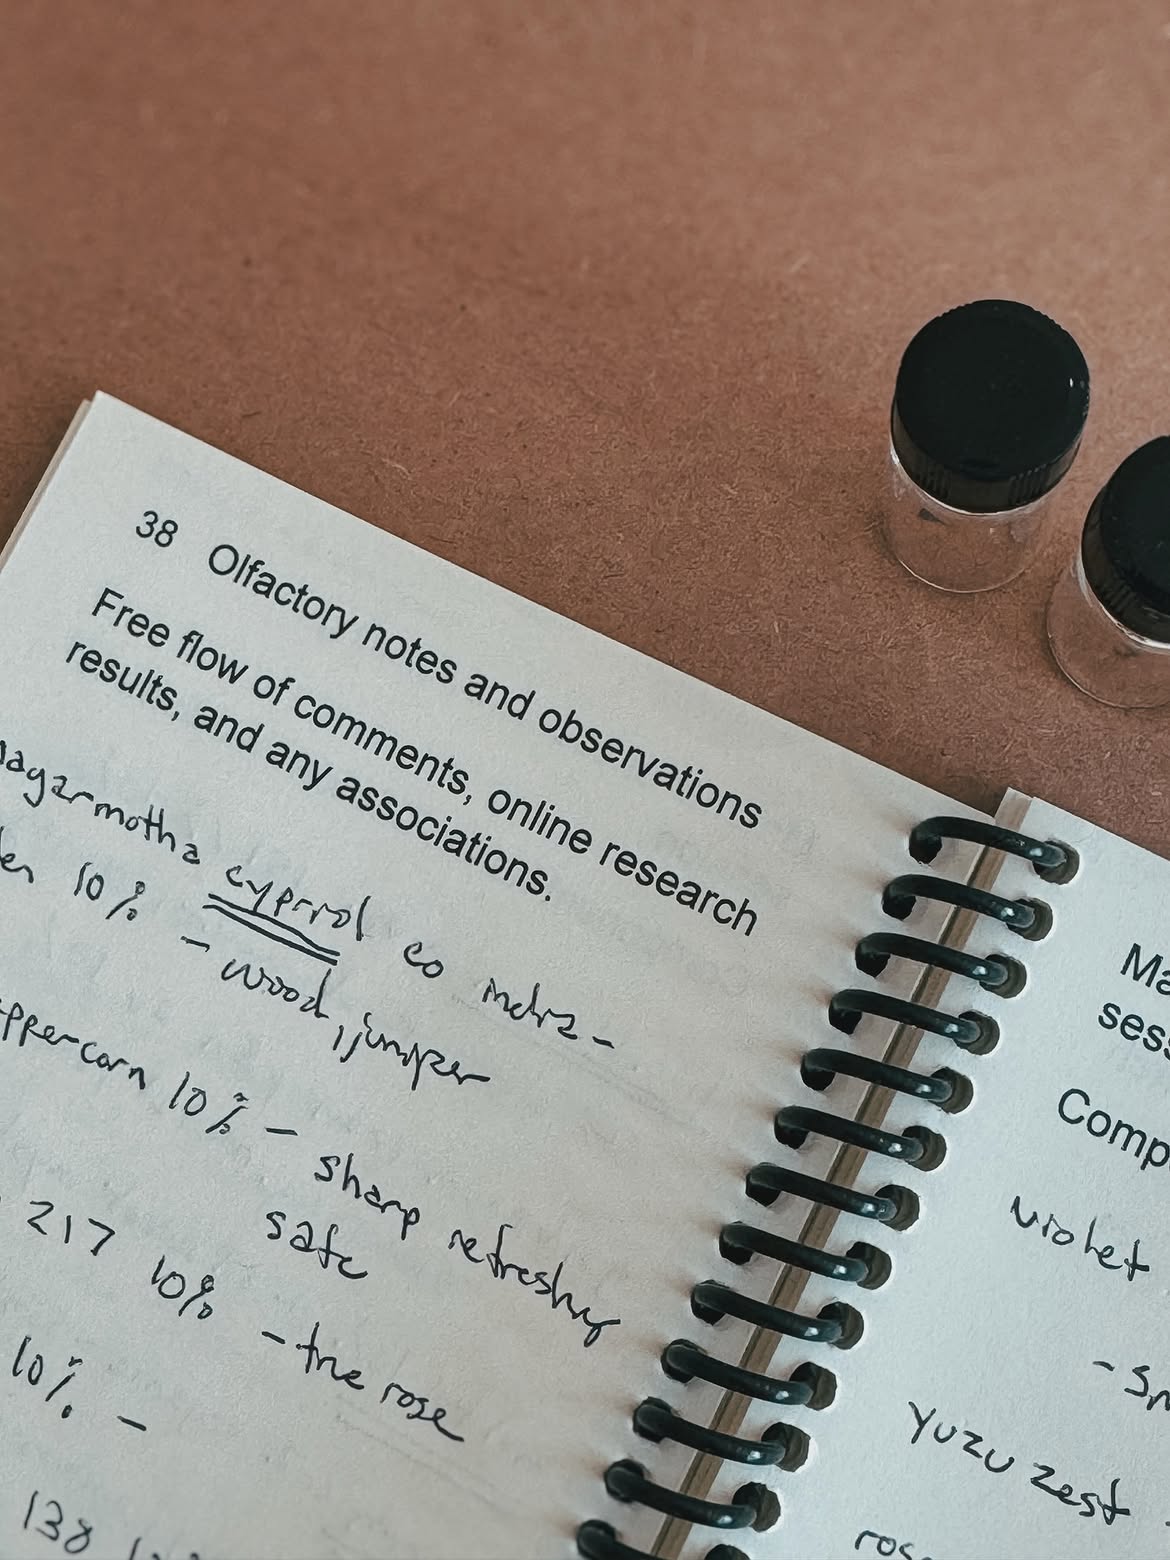 38 Olfactory notes and observations
Free flow of comments, online research
results, and any associations.
nagarmotha cypriol co
10% - wood, juniper
10% - sharp refreshing
safe
217 10% - true rose
10% -
138
Ma
sess
Comp
violet
- Sm
Yuzu zest
rose